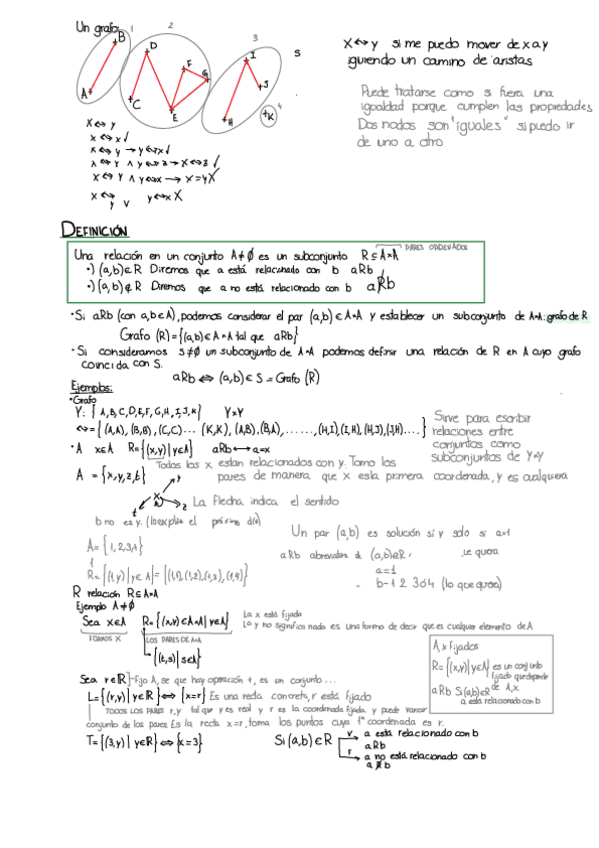 Un grafo
1
2
3
4
A
B
C
D
E
F
G
H
I
J
K
S
X ⇔ y si me puedo mover de x a y
siguiendo un camino de aristas
Puede tratarse como si fuera una
igualdad porque cumplen las propiedades
Dos nodos son "iguales" si puedo ir
de uno a otro
X ⇔ y
x ⇔ x √
x ⇔ y → y ⇔ x √
x ⇔ y ∧ y ⇔ z → x ⇔ z √
x ⇔ y ∧ y ⇔ x → x = y X
x ⇔ y v y ⇔ x X
DEFINICIÓN
Una relación en un conjunto A≠∅ es un subconjunto R⊆A×A
PARES ORDENADOS
·) (a,b)∈R Diremos que a está relacionado con b aRb
·) (a,b)∉R Diremos que a no está relacionado con b a R̸ b
·Si aRb (con a,b∈A), podemos considerar el par (a,b)∈A×A y establecer un subconjunto de A×A: grafo de R
Grafo (R)={(a,b)∈A×A tal que aRb}
·Si consideramos S≠∅ un subconjunto de A×A podemos definir una relación de R en A cuyo grafo
coincida con S.
aRb ⇔ (a,b)∈S = Grafo (R)
Ejemplos:
·Grafo
Y: { A,B,C,D,E,F,G,H,I,J,K} Y×Y
⇔ = { (A,A), (B,B), (C,C)... (K,K), (A,B), (B,A), ......, (H,I), (I,H), (H,J), (J,H)....}
Sirve para escribir
relaciones entre
conjuntos como
subconjuntos de Y×Y
·A x∈A R={(x,y)| y∈A} aRb ⇔ a=x
Todos los x estan relacionados con y. Tomo los
pares de manera que x esta primera coordenada, y es cualquiera
A = {x,y,z,b}
x
y
z
La flecha indica el sentido
b no es y. (lo explica el próximo día)
Un par (a,b) es solución si y solo si a=1
A= {1,2,3,4}
1
R= {(1,y)| y∈A}= {(1,1), (1,2), (1,3), (1,4)}
aRb abreviatura de (a,b)∈R,
a=1
b=1 2 3 ó 4 (lo que quiera)
R relación R⊆A×A
Ejemplo A≠∅
Sea x∈A R= {(x,y)∈A×A| y∈A}
La x está fijada
La y no significa nada es una forma de decir que es cualquier elemento de A
FIJAMOS X
LOS PARES DE A×A
{(t,s)| s∈A}
A, x fijados
R= {(x,y)| y∈A} es un conjunto
fijado que depende
de A,x
aRb Si (a,b)∈R
a está relacionado con b
Sea r∈R - fijo A, se que hay operación +, es un conjunto ...
L= {(r,y)| y∈R} ⇔ {x=r} Es una recta concreta, r está fijado
TODOS LOS PARES r,y tal que y es real y r es la coordenada fijada y puede variar
conjunto de los pares. Es la recta x=r, toma los puntos cuya 1ª coordenada es r.
T= {(3,y)| y∈R} ⇔ {x=3}
Si (a,b)∈R
V a está relacionado con b
aRb
F a no está relacionado con b
a R̸ b